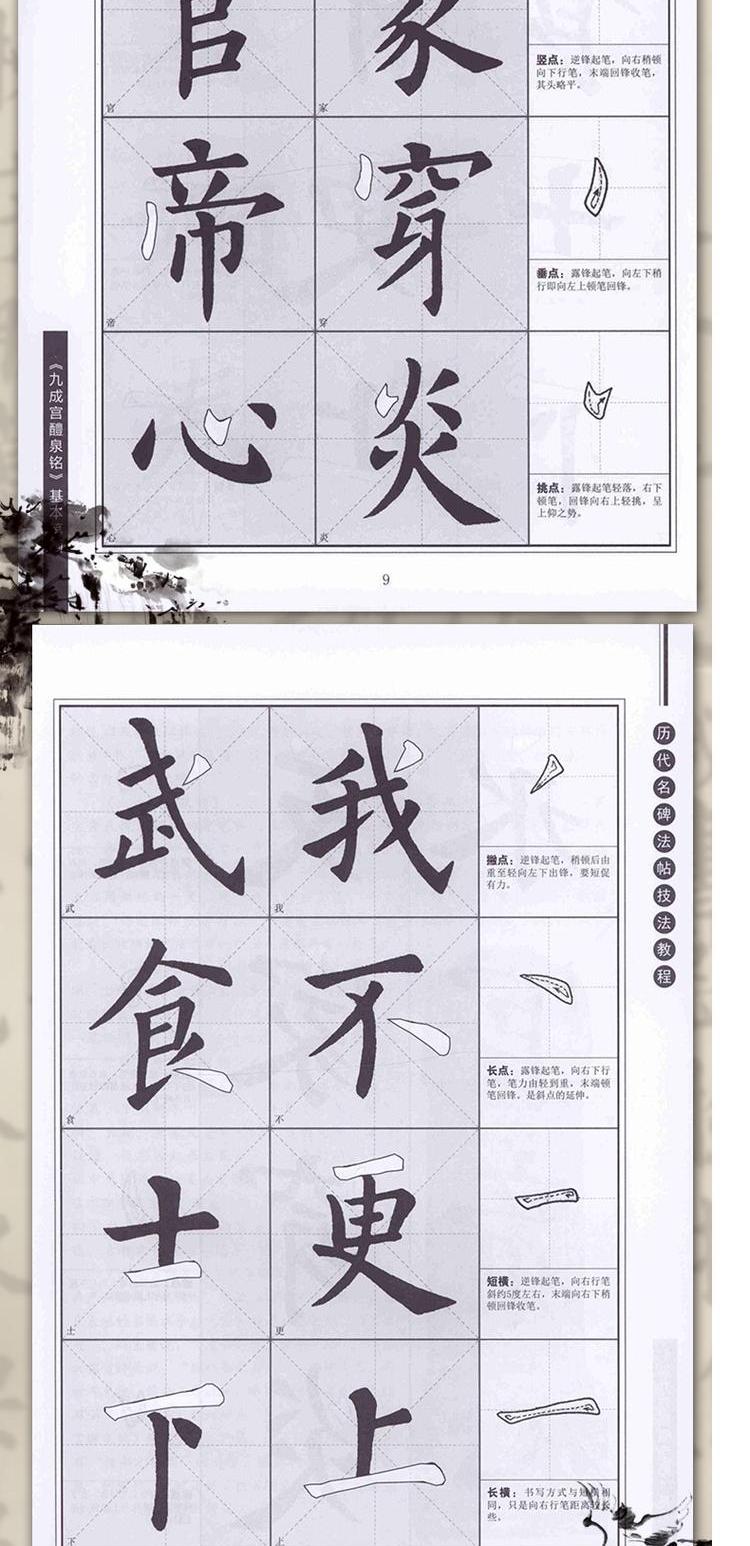 官
官
家
家
竖点：逆锋起笔，向右稍顿
向下行笔，末端回锋收笔，
其头略平。
帝
帝
穿
穿
垂点：露锋起笔，向左下稍
行即向左上顿笔回锋。
心
心
炎
炎
挑点：露锋起笔轻落，右下
顿笔，回锋向右上轻挑，呈
上仰之势。
《九成宫醴泉铭》基本
9
历代名碑法帖技法教程
武
武
我
我
撇点：逆锋起笔，稍顿后由
重至轻向左下出锋，要短促
有力。
食
食
不
不
长点：露锋起笔，向右下行
笔，笔力由轻到重，末端顿
笔回锋。是斜点的延伸。
士
士
更
更
短横：逆锋起笔，向右行笔
斜约5度左右，末端向右下稍
顿回锋收笔。
下
下
上
上
长横：书写方式与短横相
同，只是向右行笔距离较长
些。